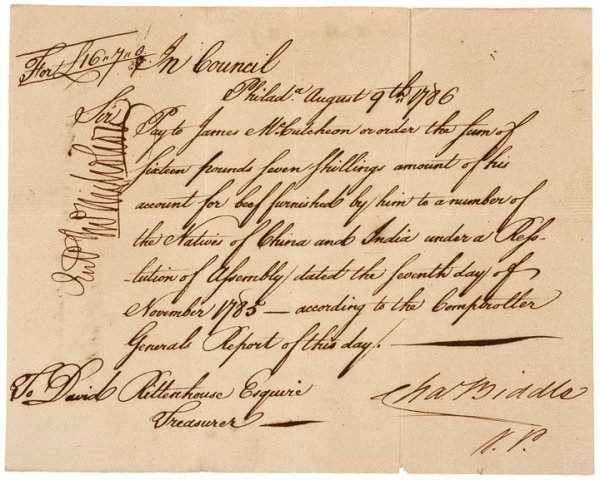 For £16 " 7 " 0
In Council
Philada. August 9th. 1786
Sir
Pay to James McCutcheon or order the sum of
Sixteen pounds seven shillings amount of his
account for beef furnished by him to a number of
the Natives of China and India under a Reso-
lution of Assembly dated the seventh day of
November 1785 — according to the Comptroller
Generals Report of this day.
To David Rittenhouse Esquire
Treasurer
Chas Biddle
V. P.